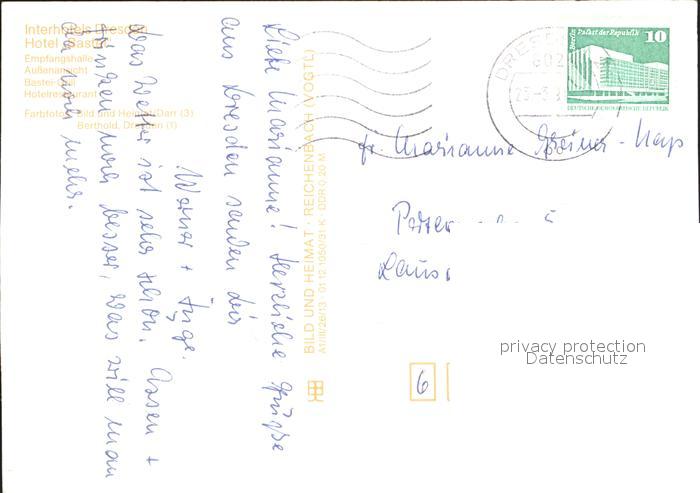 Interhotels Dresden
Hotel "Bastei"
Empfangshalle
Außenansicht
Bastei-Grill
Hotelrestaurant
Farbfotos: Bild und Heimat/Darr (3)
Berthold, Dresden (1)
Liebe Marianne! Herzliche Grüße
aus Dresden senden Dir
Werner + Inge.
Das Wetter ist sehr schön. Essen +
Trinken noch besser, was will man
da noch mehr.
BILD UND HEIMAT · REICHENBACH (VOGTL)
A1/III/26/13 01 12 1050/31 K DDR 0,20 M
DRES
802
Berlin Palast der Republik 10
DEUTSCHE DEMOKRATISCHE REPUBLIK
Fr. Marianne
Peter
Laus
6
privacy protection
Datenschutz